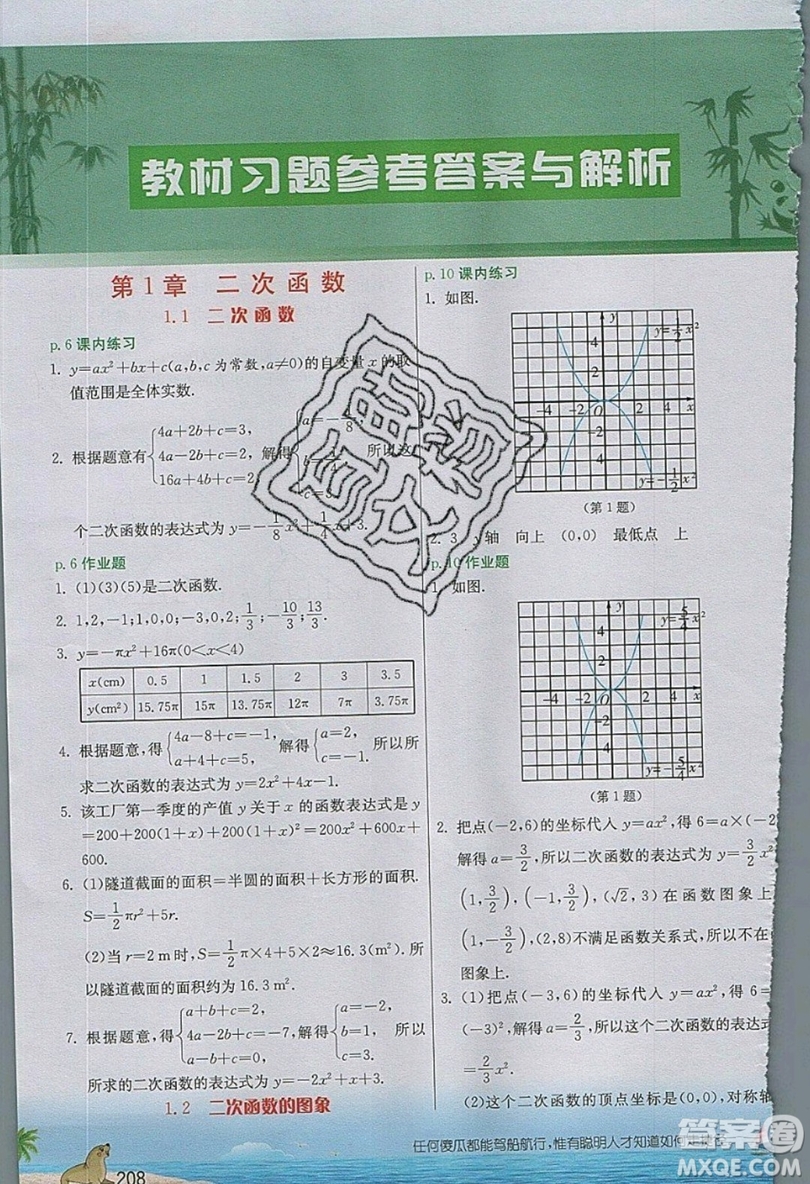 教材习题参考答案与解析
第1章 二次函数
1.1 二次函数
p.6 课内练习
1. y=ax²+bx+c(a,b,c为常数,a≠0)的自变量x的取
值范围是全体实数.
2. 根据题意有{4a+2b+c=3, 4a-2b+c=2, 16a+4b+c=2, 解得 c=3. 所以这
个二次函数的表达式为y=-1/8x²+1/4x+3.
p.6 作业题
1. (1)(3)(5)是二次函数.
2. 1,2,-1;1,0,-3;0,-3,2;1/3;-10/3;13/3.
3. y=-πx²+16π(0<x<4)
x(cm) 0.5 1 1.5 2 3 3.5
y(cm²) 15.75π 15π 13.75π 12π 7π 3.75π
4. 根据题意,得{4a-8+c=-1, a+4+c=5, 解得{a=2, c=-1. 所以所
求二次函数的表达式为y=2x²+4x-1.
5. 该工厂第一季度的产值y关于x的函数表达式是y
=200+200(1+x)+200(1+x)²=200x²+600x+
600.
6. (1)隧道截面的面积=半圆的面积+长方形的面积.
S=1/2πr²+5r.
(2)当r=2 m时,S=1/2π×4+5×2≈16.3(m²).所
以隧道截面的面积约为16.3 m².
7. 根据题意,得{a+b+c=2, 4a-2b+c=-7, a-b+c=0, 解得{a=-2, b=1, c=3. 所以
所求的二次函数的表达式为y=-2x²+x+3.
1.2 二次函数的图象
p.10 课内练习
1. 如图.
y
y=1/2x²
4
2
-4 -2 O 2 4 x
-2
-4
y=-1/2x²
(第1题)
2. 3 y轴 向上 (0,0) 最低点 上
p.10 作业题
1. 如图.
y
y=5/4x²
4
2
-4 -2 O 2 4 x
-2
-4
y=-5/4x²
(第1题)
2. 把点(-2,6)的坐标代入y=ax²,得6=a×(-2
解得a=3/2,所以二次函数的表达式为y=3/2x²
(1,3/2),(-1,3/2),(√2,3)在函数图象上
(1,-3/2),(2,8)不满足函数关系式,所以不在
图象上.
3. (1)把点(-3,6)的坐标代入y=ax²,得6=
(-3)²,解得a=2/3,所以这个二次函数的表达式
=2/3x².
(2)这个二次函数的顶点坐标是(0,0),对称轴
任何傻瓜都能驾船航行,惟有聪明人才知道如何
208
答案圈
MXQE.COM